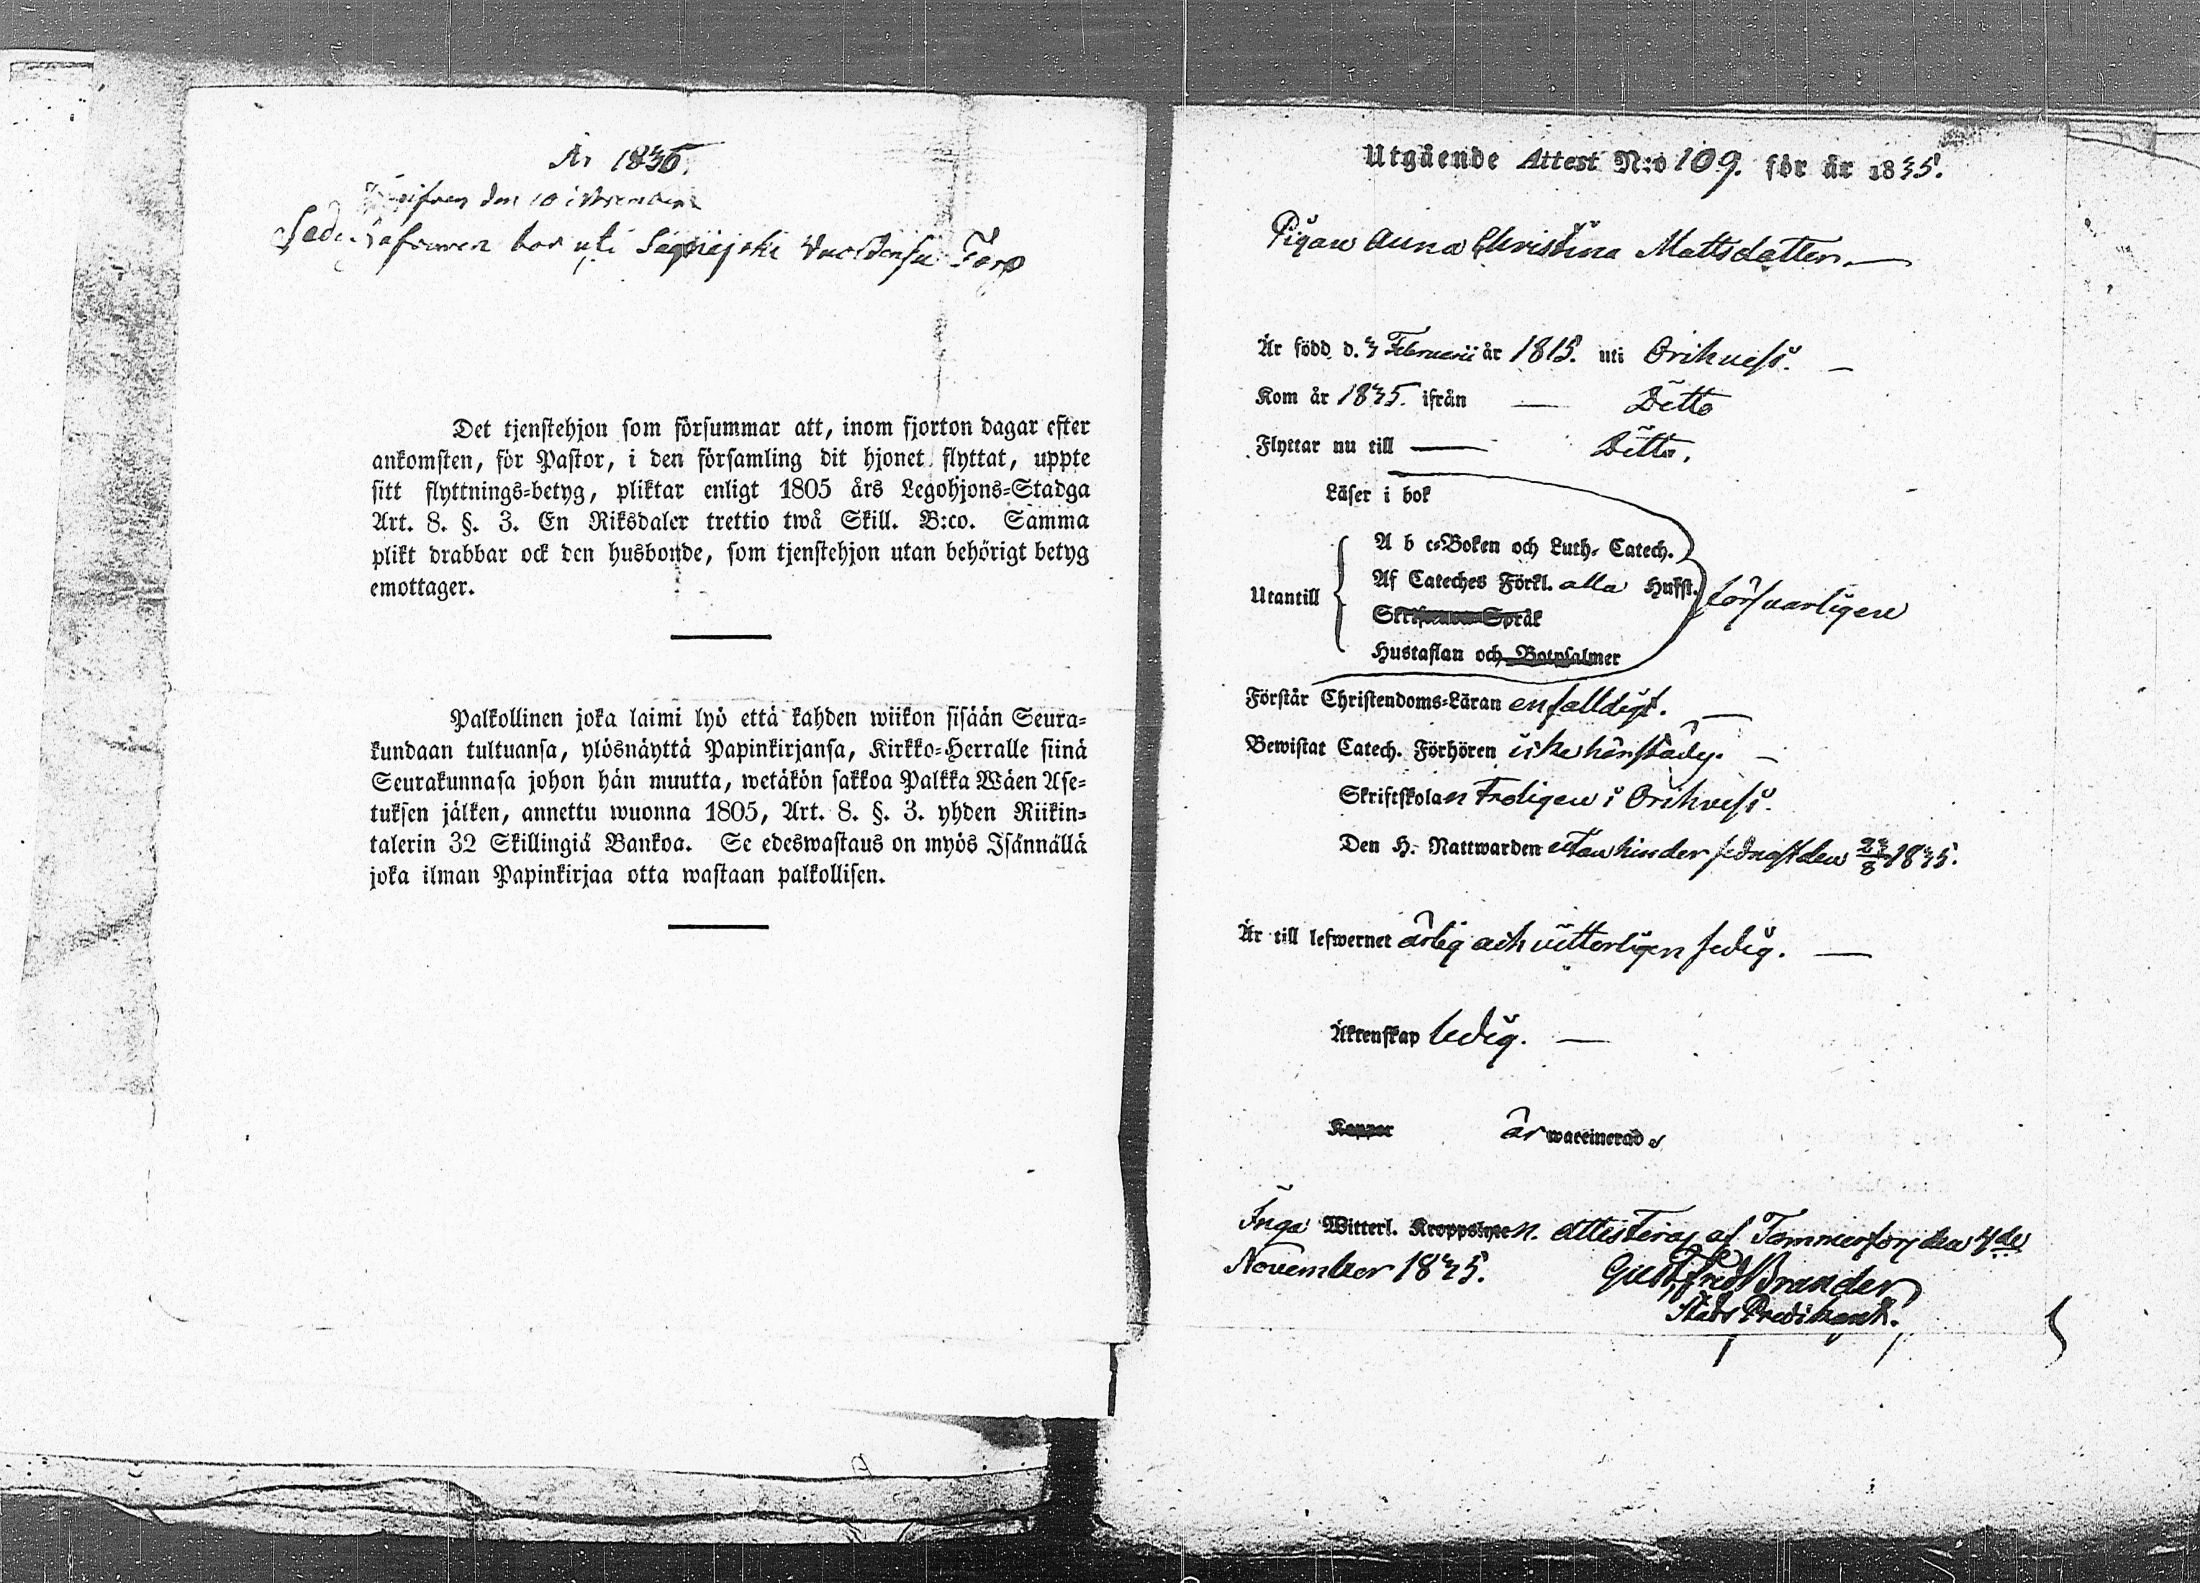 År 1835.
den 10 November
bor uti Torp
Det tjenstehjon som försummar att, inom fjorton dagar efter
ankomsten, för Pastor, i den församling dit hjonet flyttat, uppte
sitt flyttnings-betyg, pliktar enligt 1805 års Legohjons-Stadga
Art. 8. §. 3. En Riksdaler trettio twå Skill. B:co. Samma
plikt drabbar ock den husbonde, som tjenstehjon utan behörigt betyg
emottager.
Palkollinen joka laimi lyö että kahden wiikon sisään Seura-
kundaan tultuansa, ylösnäyttä Papinkirjansa, Kirkko-Herralle siinä
Seurakunnasa johon hän muutta, wetäkön sakkoa Palkka Wäen Ase-
tuksen jälken, annettu wuonna 1805, Art. 8. §. 3. yhden Riikin-
talerin 32 Skillingiä Bankoa. Se edeswastaus on myös Isännällä
joka ilman Papinkirjaa otta wastaan palkollisen.
Utgående Attest N:o 109. för år 1835.
Pigan Anna Christina Mattsdotter.
Är född d. 3 Februarii år 1815. uti Orihvesi.
Kom år 1835. ifrån — Ditto
Flyttar nu till — Ditto.
Läser i bok
A b c-Boken och Luth. Catech.
Utantill Af Cateches Förkl. alla Hufst. försvarligen
Skriftenes Språk
Hustaflan och Botpsalmer
Förstår Christendoms-Läran enfalldigt.
Bewistat Catech. Förhören icke härstädes.
Skriftskolan Troligen i Orihvesi.
Den H. Nattwarden utan hinder sednast den 23/8 1835.
Är till lefwernet ärlig och vitterligen sedig.
Äktenskap ledig.
Koppor är waccinerad
Inga Witterl. Kroppslyten. Attesteras af Tammerfors den 4de
November 1835. Gust. Fred. Brander
Stads Predikant.